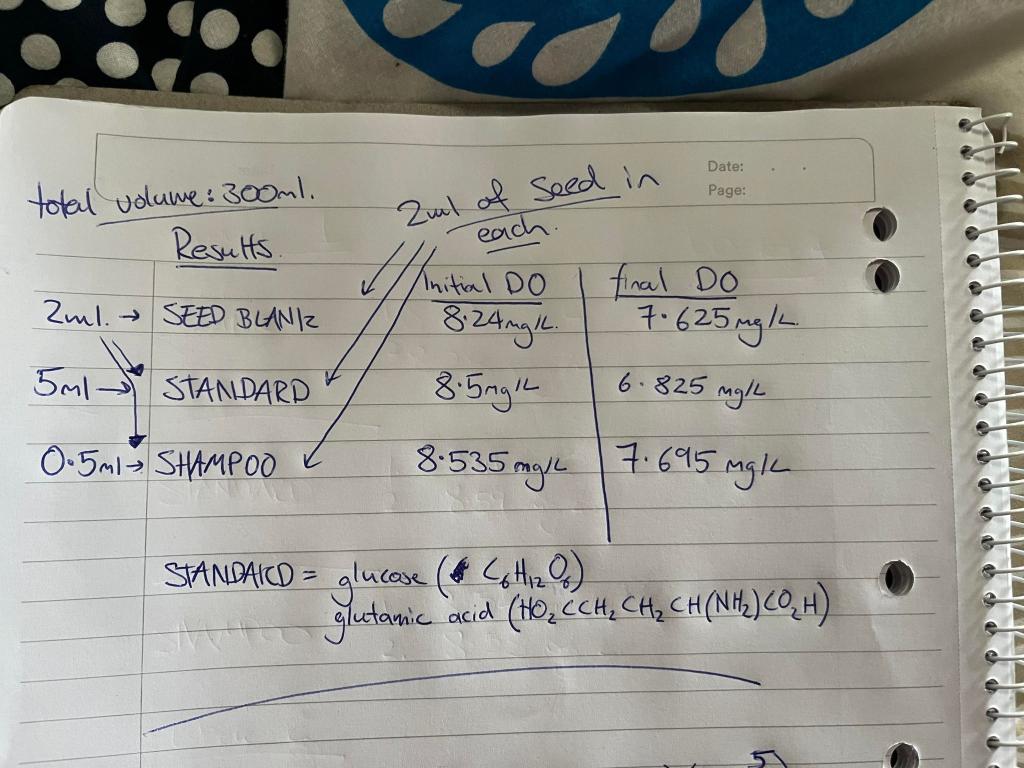 Date: . .
Page:
total volume: 300ml.
2ml of Seed in
each.
Results.
Initial DO
final DO
2ml. → SEED BLANK
8.24mg/L.
7.625mg/L.
5ml → STANDARD
8.5mg/L
6.825 mg/L
0.5ml → SHAMPOO
8.535mg/L
7.695 mg/L
STANDARD = glucose (C₆H₁₂O₆)
glutamic acid (HO₂CCH₂CH₂CH(NH₂)CO₂H)